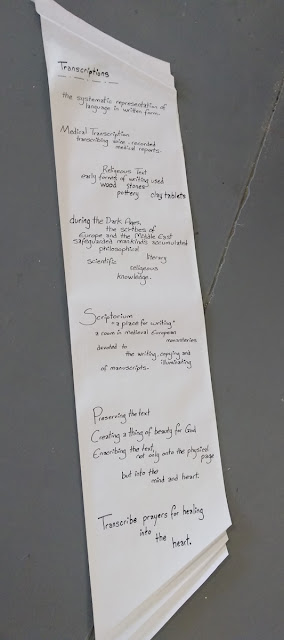 Transcriptions
the systematic representation of
language in written form.
Medical Transcription
transcribing voice-recorded
medical reports.
Religious Text
early formed of writing used
wood stones
pottery clay tablets
during the Dark Ages,
the scribes of
Europe and the Middle East
safeguarded mankinds accumulated
philosophical
literary
scientific
religious
knowledge.
Scriptorium
"a place for writing"
a room in medieval European
monasteries
devoted to
the writing, copying and
illuminating
of manuscripts.
Preserving the text
Creating a thing of beauty for God
Enscribing the text,
not only onto the physical
page
but into the
mind and heart.
Transcribe prayers for healing
into
the
heart.